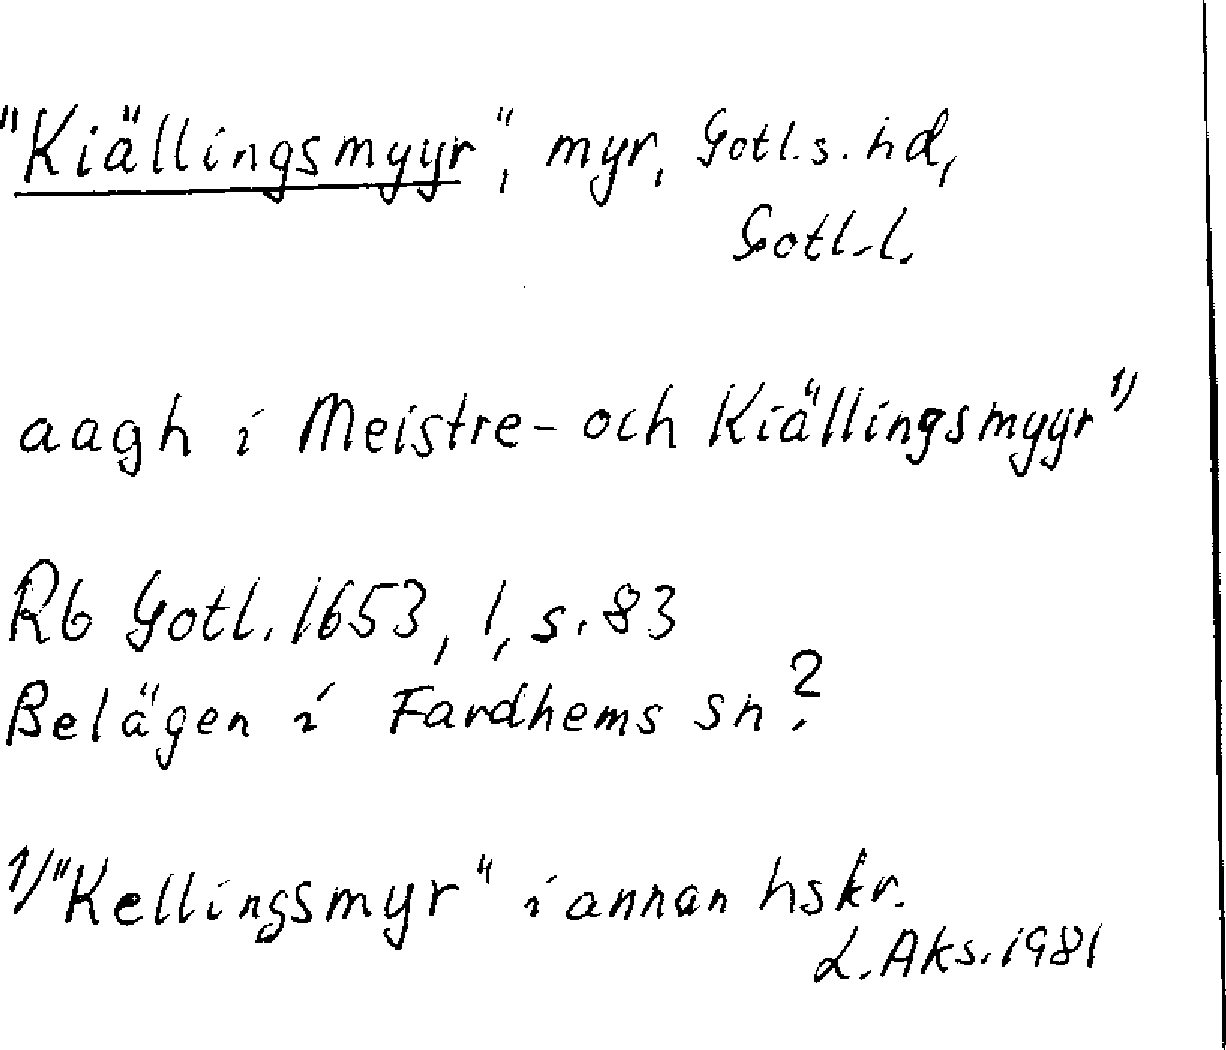 "Kiällingsmyyr", myr, Gotl.s. hd,
Gotl.l.
aagh i Meistre- och Kiällingsmyyr 1)
Rb Gotl. 1653, 1, s. 83
Belägen i Fardhems sn?
1) "Kellingsmyr" i annan hskr.
L. Aks. 1981